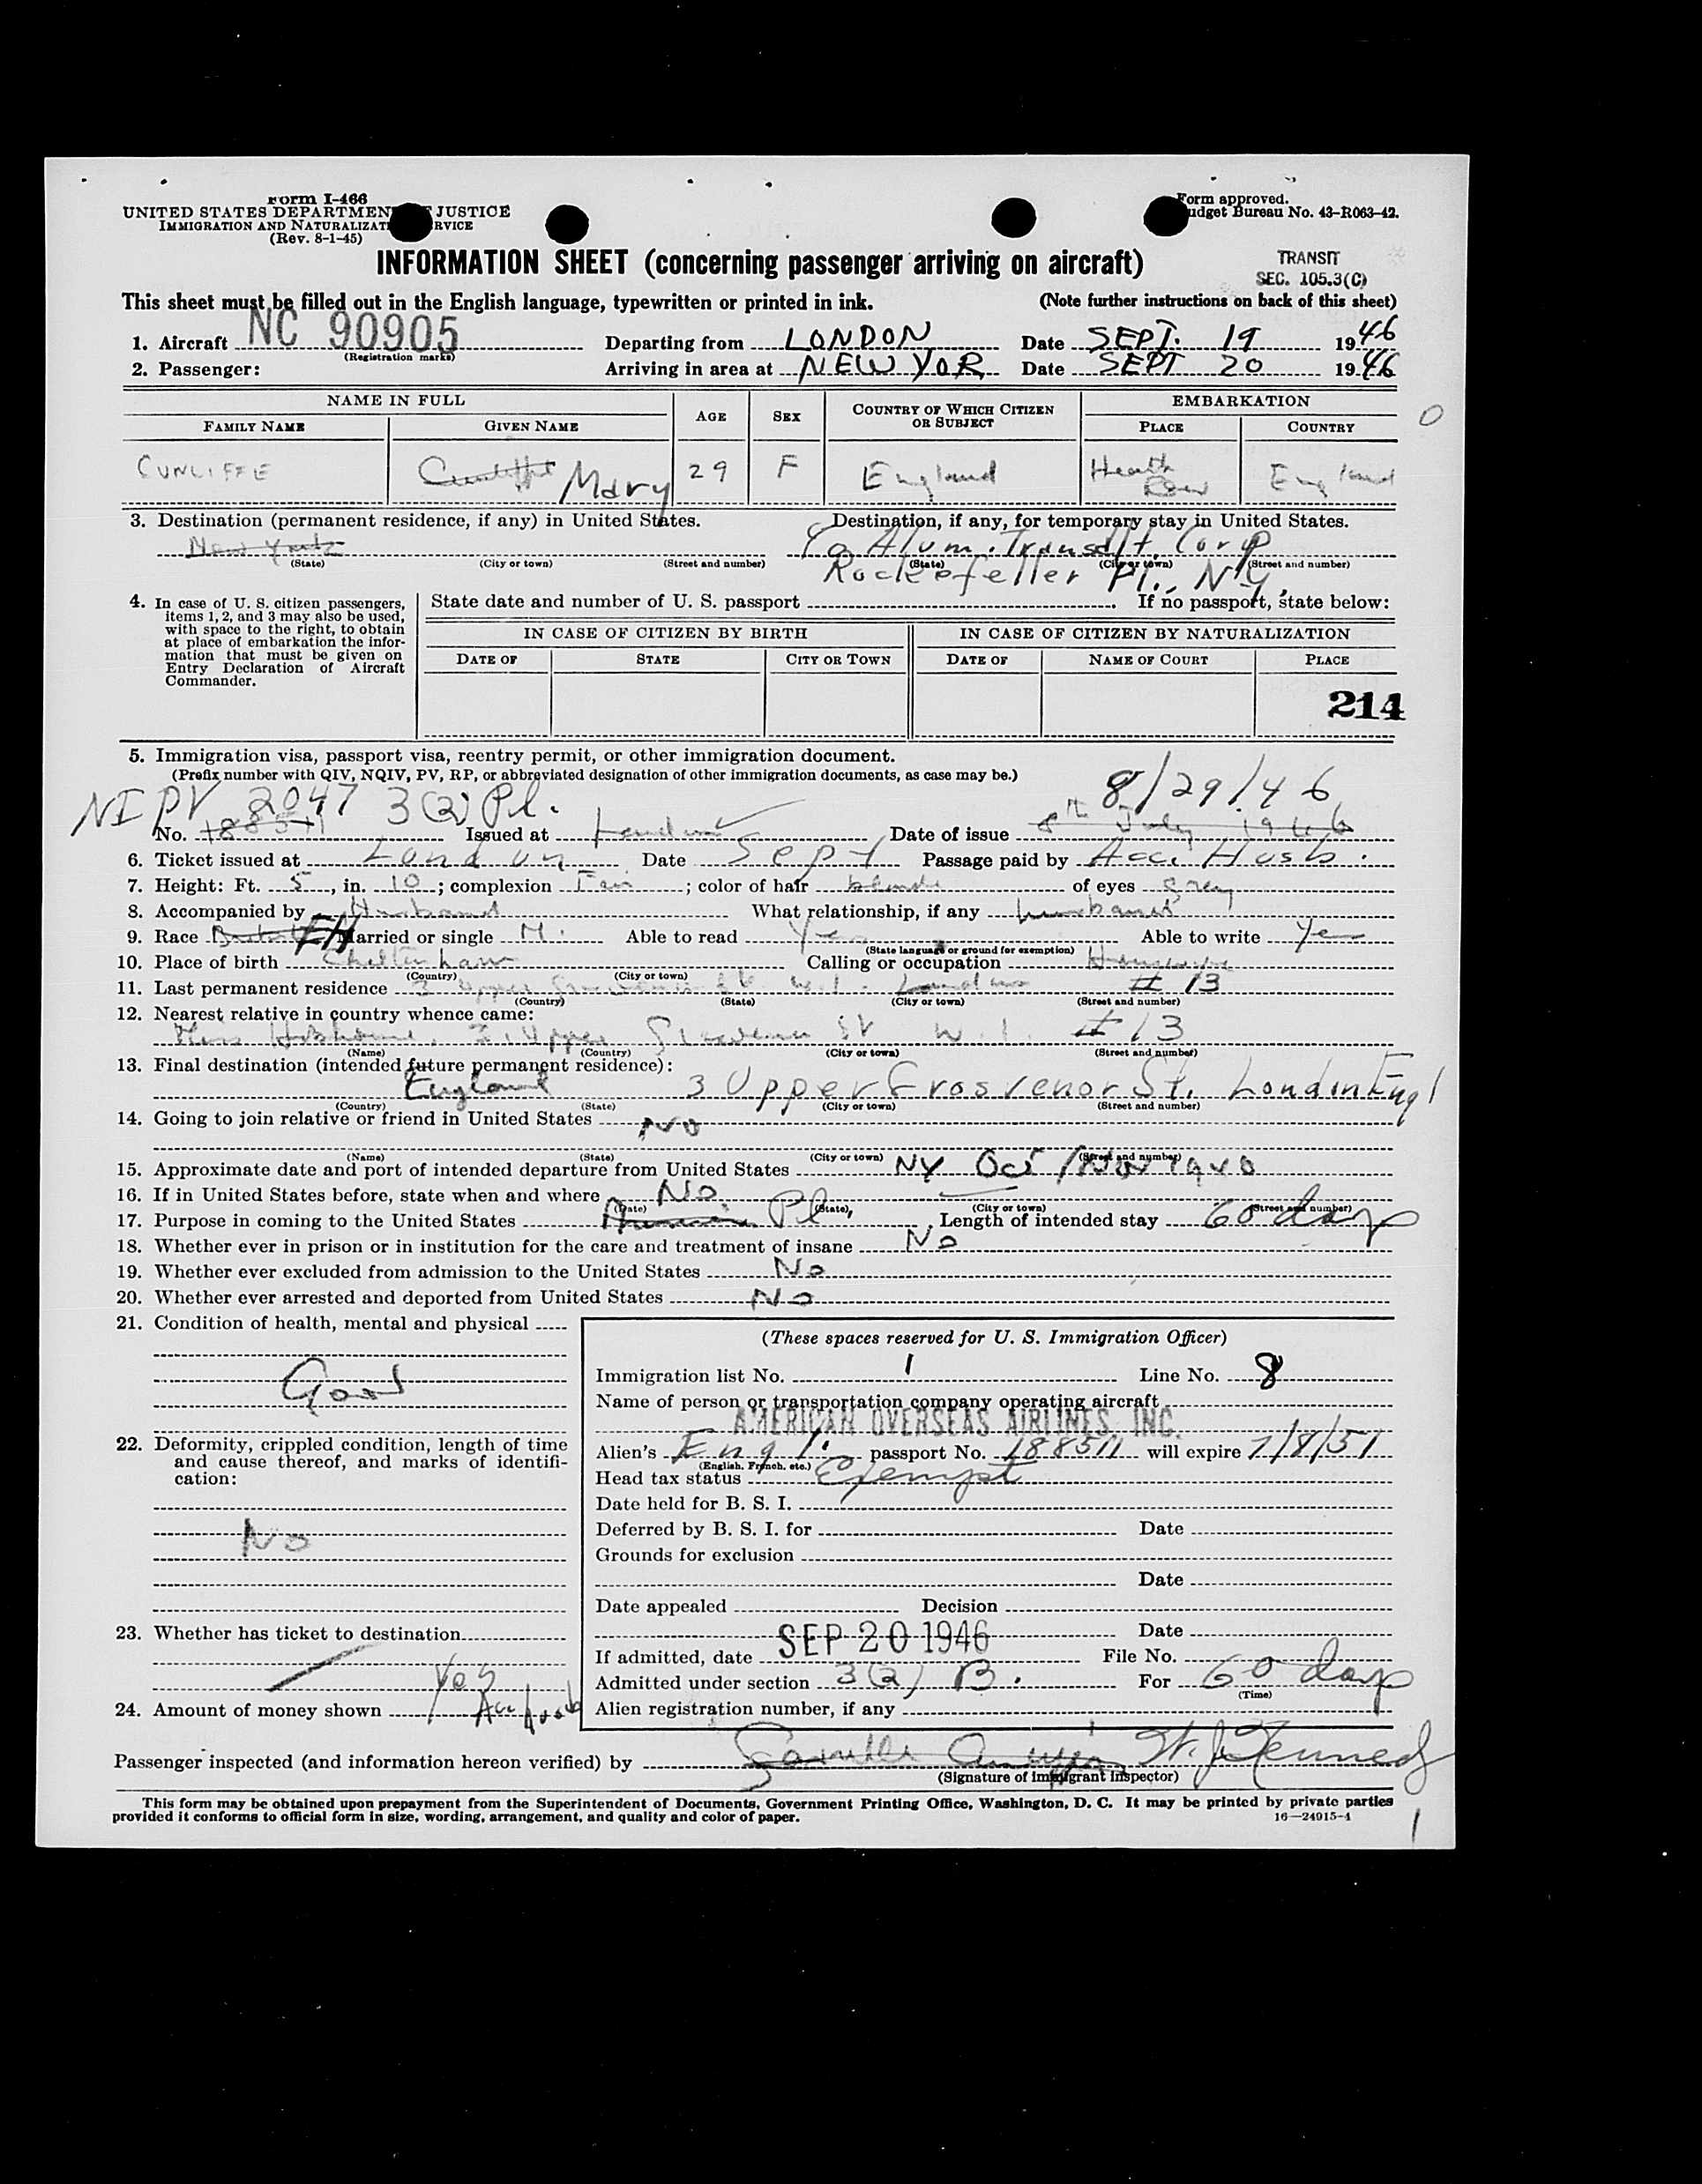 Form I-466
UNITED STATES DEPARTMEN JUSTICE
IMMIGRATION AND NATURALIZAT RVICE
(Rev. 8-1-45)
Form approved.
udget Bureau No. 43-R063-42.
INFORMATION SHEET (concerning passenger arriving on aircraft)
TRANSIT
SEC. 105.3(C)
This sheet must be filled out in the English language, typewritten or printed in ink. (Note further instructions on back of this sheet)
1. Aircraft NC 90905 Departing from LONDON Date SEPT. 19 1946
(Registration marks)
2. Passenger: Arriving in area at NEW YOR Date SEPT 20 1946
NAME IN FULL AGE SEX COUNTRY OF WHICH CITIZEN OR SUBJECT EMBARKATION
FAMILY NAME GIVEN NAME PLACE COUNTRY
0
CUNLIFFE Cunliffe Mary 29 F England Heath Row England
3. Destination (permanent residence, if any) in United States. Destination, if any, for temporary stay in United States.
New York Alum. Corp
(State) (City or town) (Street and number) (State) (City or town) (Street and number)
Rockefeller Pl., NY.
4. In case of U. S. citizen passengers, items 1, 2, and 3 may also be used, with space to the right, to obtain at place of embarkation the information that must be given on Entry Declaration of Aircraft Commander.
State date and number of U. S. passport If no passport, state below:
IN CASE OF CITIZEN BY BIRTH IN CASE OF CITIZEN BY NATURALIZATION
DATE OF STATE CITY OR TOWN DATE OF NAME OF COURT PLACE
214
5. Immigration visa, passport visa, reentry permit, or other immigration document.
(Prefix number with QIV, NQIV, PV, RP, or abbreviated designation of other immigration documents, as case may be.)
NI PV 2047 3(2) Pl. 8/29/46
No. 188511 Issued at London Date of issue 8th July 1946
6. Ticket issued at London Date Sept Passage paid by Acc. Husb.
7. Height: Ft. 5, in. 10; complexion Fair; color of hair blonde of eyes Grey
8. Accompanied by Husband What relationship, if any husband
9. Race British Married or single M. Able to read Yes Able to write Yes
(State language or ground for exemption)
10. Place of birth Cheltenham Calling or occupation Housewife
(Country) (City or town)
11. Last permanent residence 3 Upper Grosvenor St W.1. London # 13
(Country) (State) (City or town) (Street and number)
12. Nearest relative in country whence came:
3 Upper Grosvenor St W.1. # 13
(Name) (Country) (City or town) (Street and number)
13. Final destination (intended future permanent residence):
England 3 Upper Grosvenor St. London Engl
(Country) (State) (City or town) (Street and number)
14. Going to join relative or friend in United States No
(Name) (State) (City or town) (Street and number)
15. Approximate date and port of intended departure from United States NY Oct / Nov 1946
16. If in United States before, state when and where No
(Date) (State) (City or town) (Street and number)
17. Purpose in coming to the United States Pl Length of intended stay 60 days
18. Whether ever in prison or in institution for the care and treatment of insane No
19. Whether ever excluded from admission to the United States No
20. Whether ever arrested and deported from United States No
21. Condition of health, mental and physical
Good
22. Deformity, crippled condition, length of time and cause thereof, and marks of identification:
No
23. Whether has ticket to destination
Yes
24. Amount of money shown Acc husb
(These spaces reserved for U. S. Immigration Officer)
Immigration list No. 1 Line No. 8
Name of person or transportation company operating aircraft
AMERICAN OVERSEAS AIRLINES, INC.
Alien's Engl. passport No. 188511 will expire 7/8/51
(English, French, etc.)
Head tax status Exempt
Date held for B. S. I.
Deferred by B. S. I. for Date
Grounds for exclusion
Date
Date appealed Decision
Date
If admitted, date SEP 20 1946 File No.
Admitted under section 3(2) B. For 60 days
(Time)
Alien registration number, if any
Passenger inspected (and information hereon verified) by Kennedy
(Signature of immigrant inspector)
This form may be obtained upon prepayment from the Superintendent of Documents, Government Printing Office, Washington, D. C. It may be printed by private parties
provided it conforms to official form in size, wording, arrangement, and quality and color of paper. 16—24915-4
1